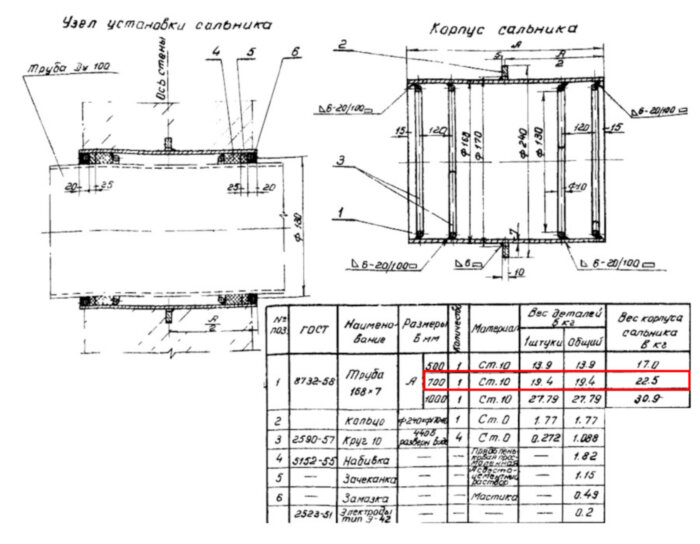 Узел установки сальника
Корпус сальника
Труба Ду 100
Ось стены
4
5
6
20
25
25
20
ф 130
А
2
2
3
1
А
5
А
2
6-20/100
6-20/100
15
120
ф 168
ф 170
ф 240
ф 130
120
15
ф10
6-20/100
6
7
10
6-20/100
№ поз.
ГОСТ
Наимено-
вание
Размеры
в мм
Количество
Материал
Вес деталей
в кг
1 штуки
Общий
Вес корпуса
сальника
в кг
1
8732-58
Труба
168×7
А
500 1 Ст.10 13.9 13.9 17.0
700 1 Ст.10 19.4 19.4 22.5
1000 1 Ст.10 27.79 27.79 30.9
2 — Кольцо 1 Ст.0 1.77 1.77
3 2590-57 Круг 10 440 в разверн. виде 4 Ст.0 0.272 1.088
4 5152-55 Набивка — — — 1.82
5 — Зачеканка — — — 1.15
6 — Замазка — — Мастика — 0.49
2523-51 Электроды
тип Э-42 — — — 0.2